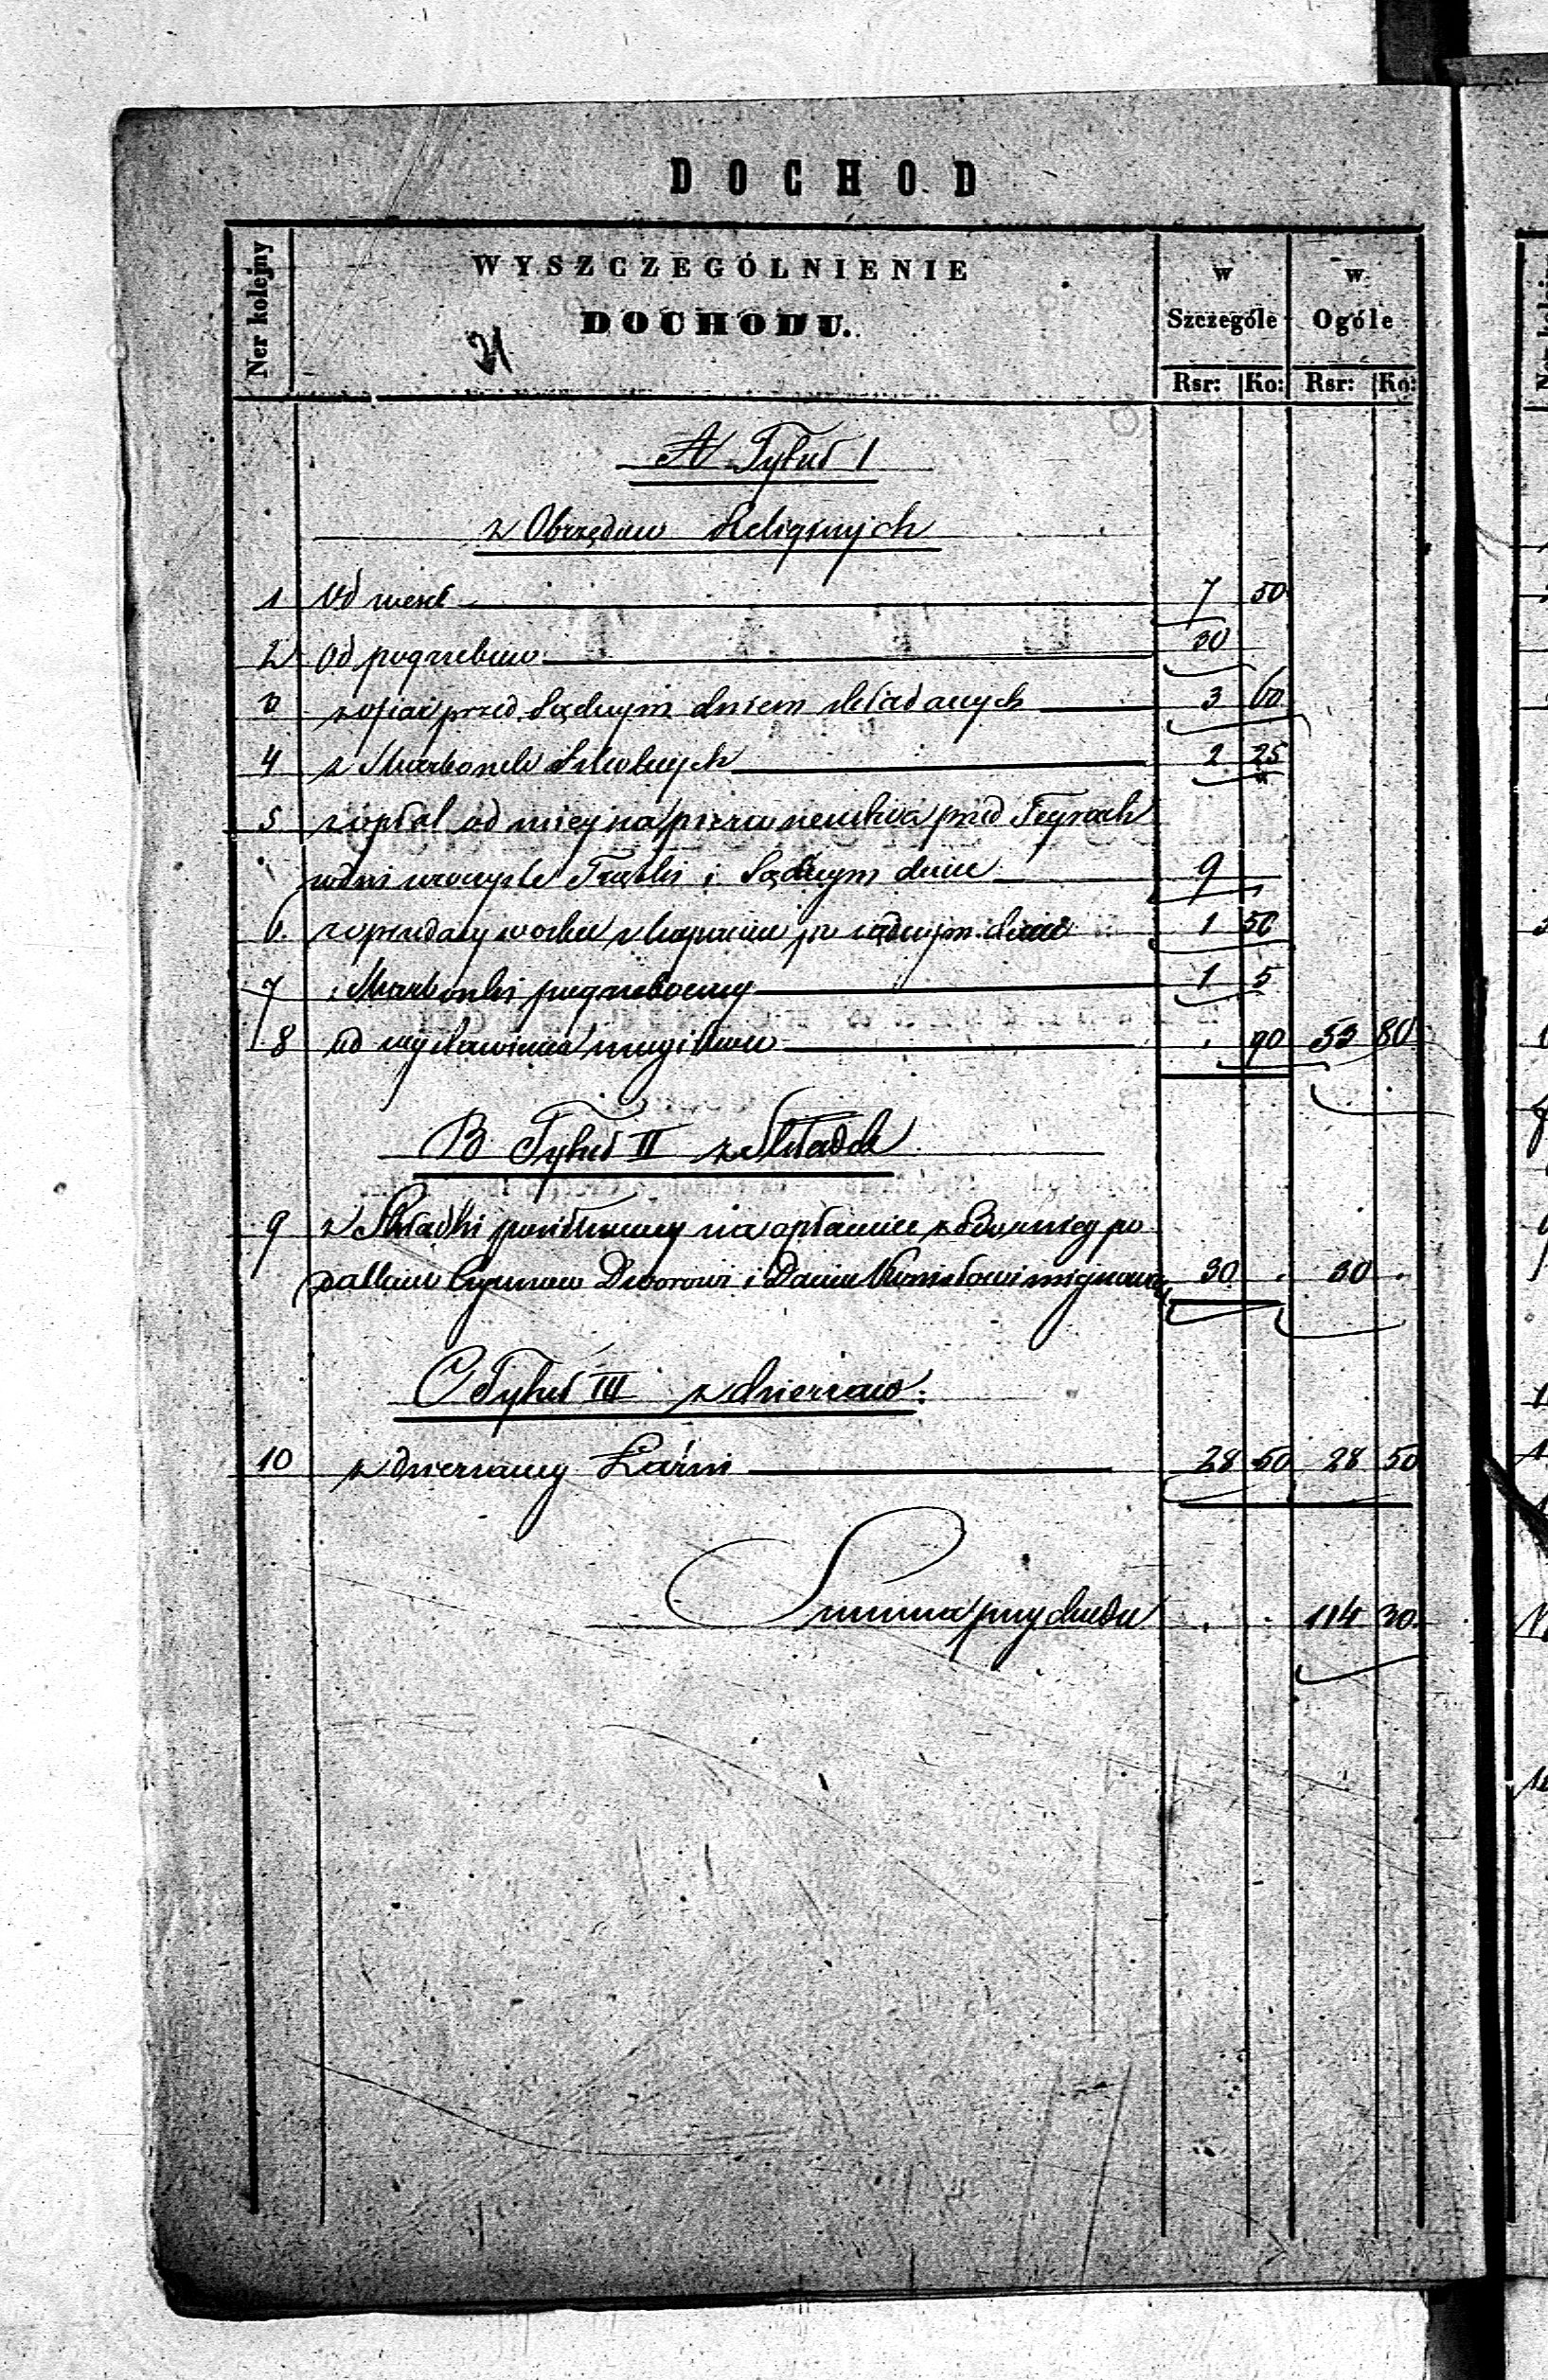 DOCHOD
Ner kolejny
WYSZCZEGÓLNIENIE
DOCHODU.
21
w Szczególe
w Ogóle
Rsr: Ko: Rsr: Ko:
A Tytuł I
z Obrzędów Religijnych
1 Od wesel 7 50
2 Od pogrzebów 30
3 z ofiar przed Sądnym dniem składanych 3 60
4 z Skarbonek Szkolnych 2 25
5 z opłat od miejsca pierwszeństwa przed
w dni uroczyste Trąbki i Sądnym dniu 9
6. z sprzedaży wosku z kapania po sądnym dniu 1 50
7 z Skarbonki pogrzebowey 1 5
8 od wystawienia nagrobków . 90 55 80
B Tytuł II z Składek
9 z Składki na opłacenie
Dworowi i 30 . 30 .
C Tytuł III z dzierżaw.
10 z dzierżawy Łaźni 28 50 28 50
Summa przychodu . . 114 30.